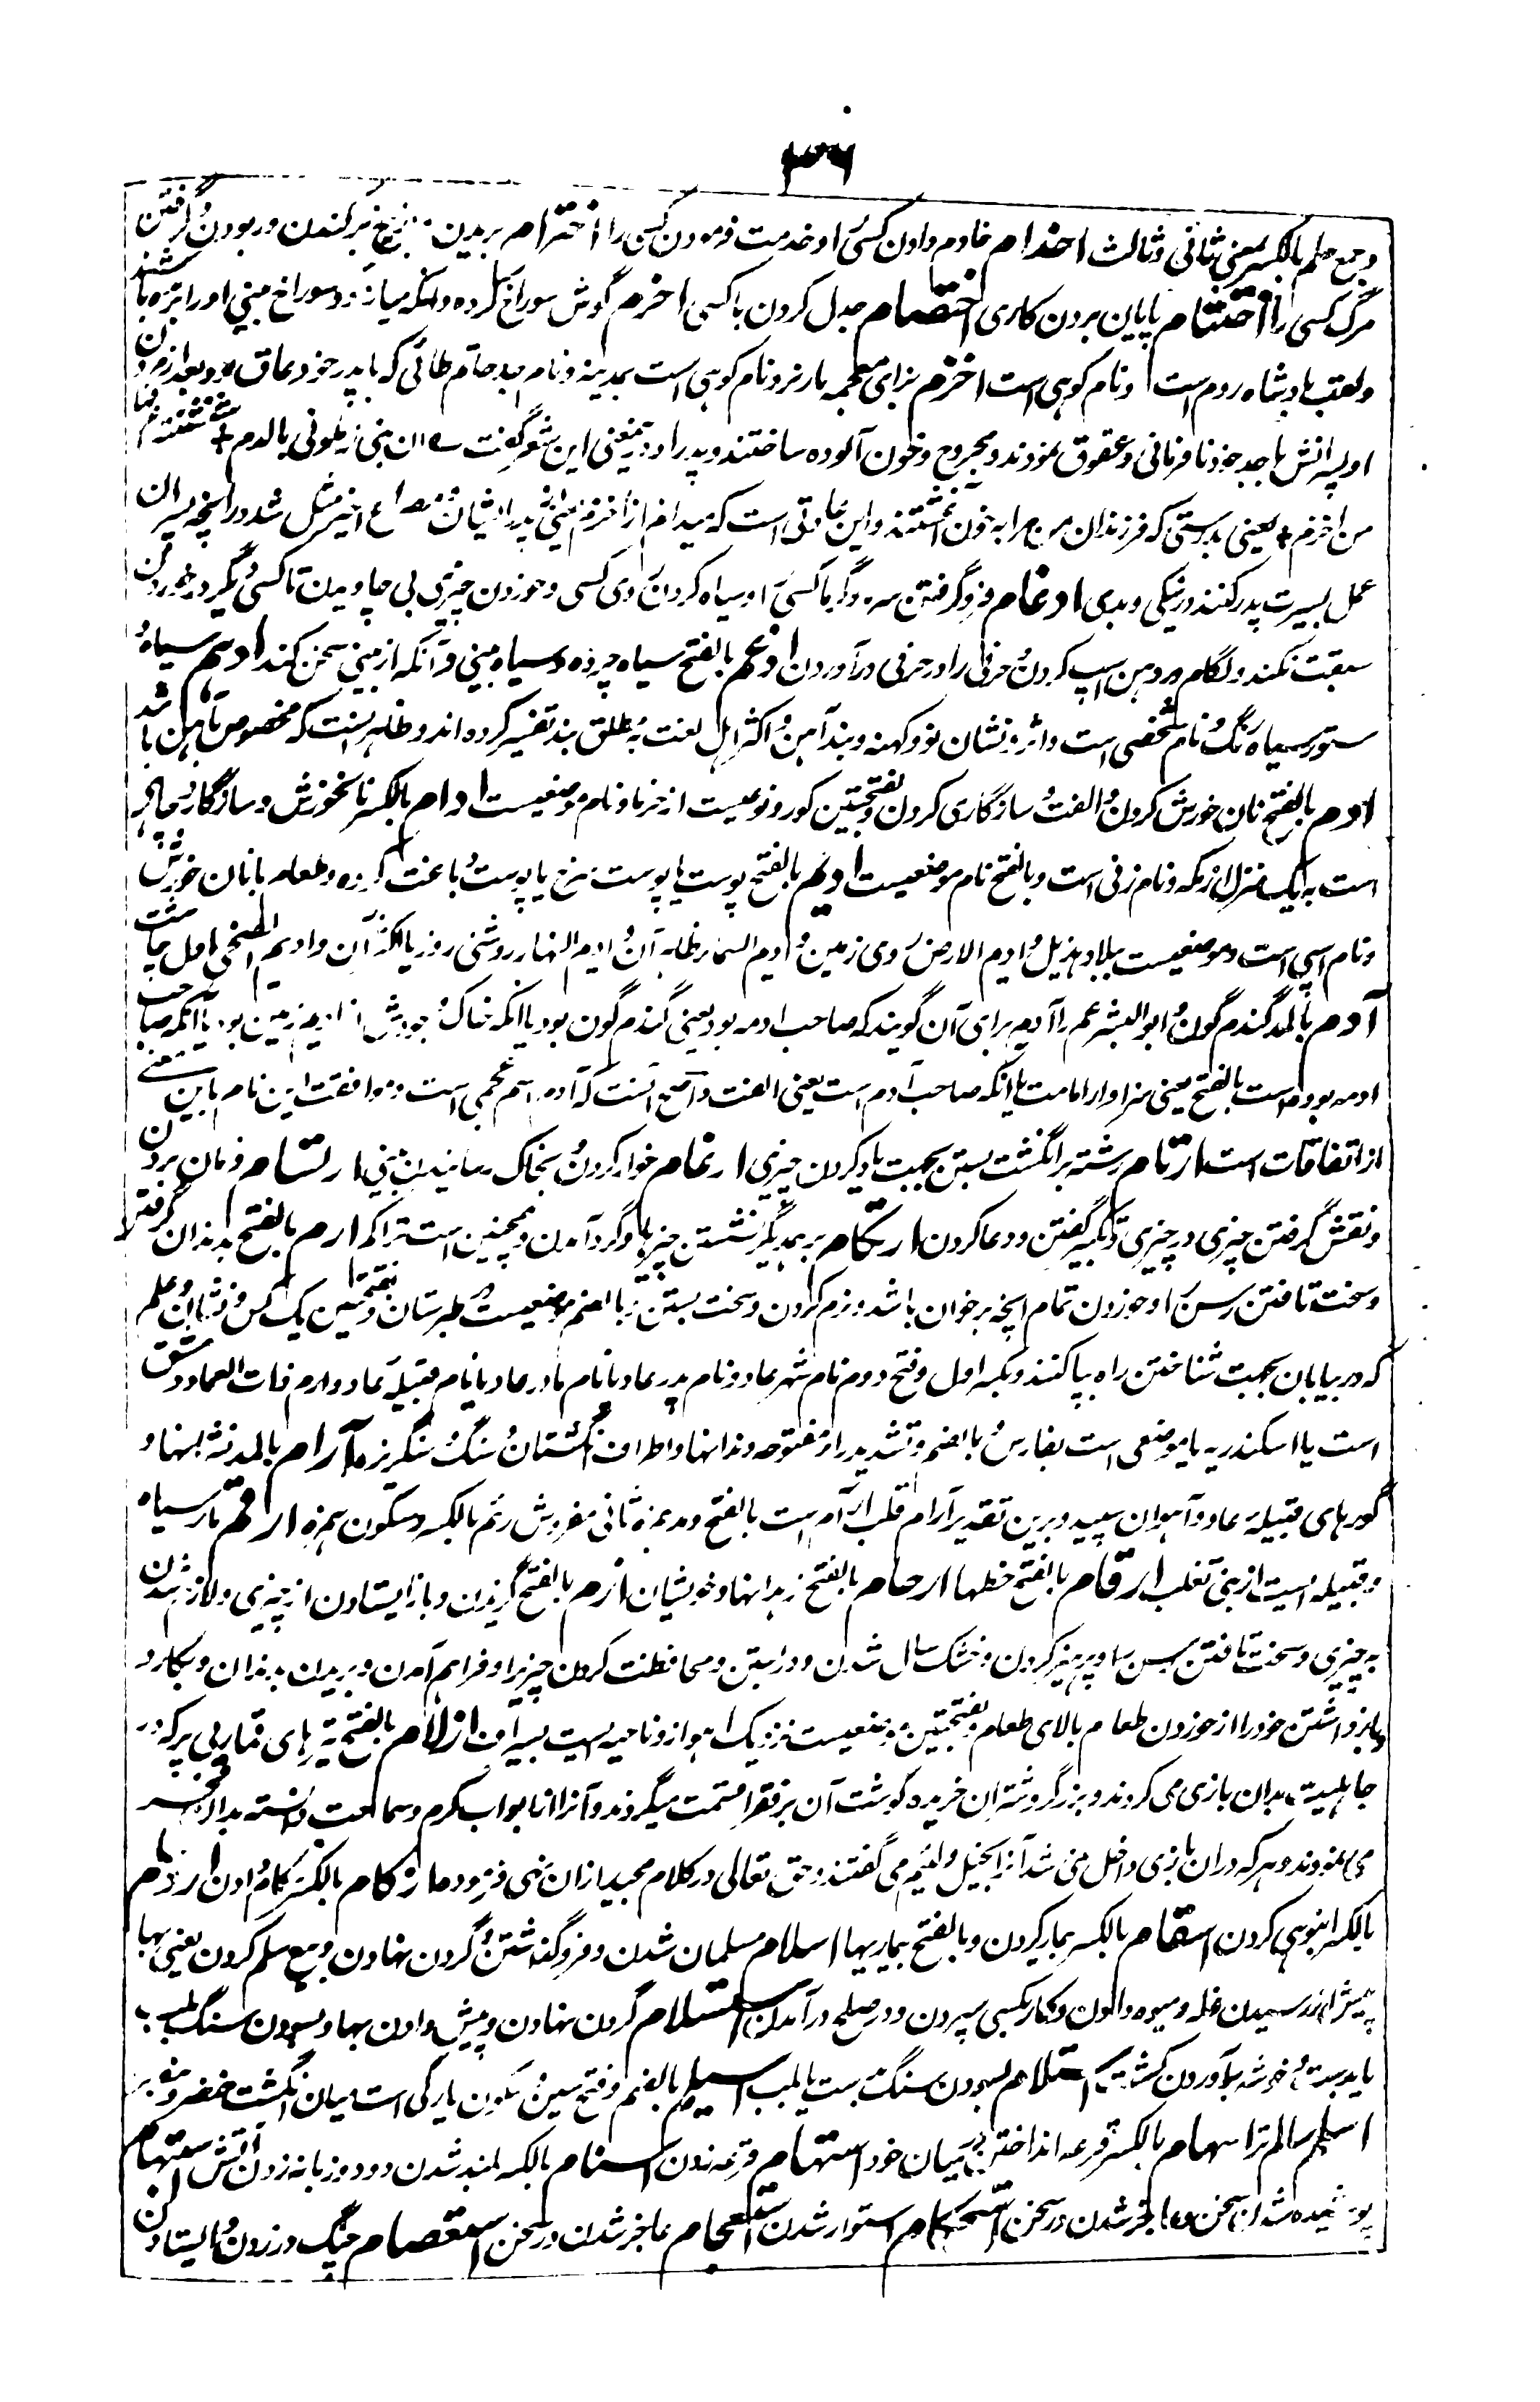 ۳۶
و جمع حلم بالکسر بمعنی ثانی و ثالث اخدام خادم دادن کسی را و خدمت فرمودن کسی را اخترام بریدن و از بیخ برکندن و ربودن و گرفتن
مرگ کسی را اختتام بپایان بردن کاری اختصام جدل کردن با کسی اخرم گوش سوراخ کرده و آنکه میانه دو سوراخ بینی او را بریده باشند
و لقب پادشاه روم است و نام کوهی است اخزم بزای معجمه مار نر و نام کوهی است بمدینه و نام جد حاتم طائی که با پدر خود عاق بود و بعد از مردن
او پسرانش با جد خود نافرمانی و عقوق نمودند و مجروح و خون آلوده ساختند و پدر او درین معنی این شعر گفت ان بنی زملونی بالدم شنشنة اعرفها
من اخزم یعنی بدرستی که فرزندان من مرا به خون آغشتند و این عادتی است که میدانم از اخزم یعنی پدر ایشان و مصراع اخیر مثل شد در آنچه پسران
عمل بسیرت پدر کنند در نیکی و بدی ادغام فروگرفتن سرما و گرما کسی را و سیاه کردن روی کسی و خوردن چیزی بی جاویدن تا کسی دیگر در خوردن
سبقت نکند و لگام در دهن اسپ کردن و حرفی را در حرفی درآوردن ادغم بالفتح سیاه چرده و سیاه بینی و آنکه از بینی سخن کند ادهم سیاه و
ستور سیاه رنگ و نام شخصی است و اثر و نشان نو و کهنه و بند آهن و اکثر اهل لغت به مطلق بند تفسیر کرده اند و ظاهر آنست که مخصوص بآهن باشد
ادم بالفتح نان خورش کردن و الفت و سازگاری کردن و بفتحتین گور و نوعیست از خرما و نام موضعیست ادام بالکسر نانخورش و سازگار و چاهی
است به یک منزل از مکه و نام زنی است و بالفتح نام موضعیست ادیم بالفتح پوست یا پوست سرخ یا پوست دباغت کرده و طعام با نان خورش
و نام اسپی است و موضعیست ببلاد هذیل و ادیم الارض روی زمین و ادیم السماء ظاهر آن و ادیم النهار روشنی روز یا کل آن و ادیم الضحی اول چاشت
آدم بالمد گندم گون و ابوالبشر عم را آدم برای آن گویند که صاحب ادمه بود یعنی گندم گون بود یا آنکه خاک وجودش از ادیم زمین بود یا آنکه صاحب
ادمه بوده است بالفتح یعنی سزاوار امامت یا آنکه صاحب ادم است یعنی الفت و اصح آنست که آدم اسم عجمی است و موافقت این نام باین معنی
از اتفاقات است ارتام رشته بر انگشت بستن بجهت یاد کردن چیزی ارغام خوار کردن و بخاک رسانیدن بینی ارتسام فرمان بردن
و نقش گرفتن چیزی در چیزی و تکبیر گفتن و دعا کردن ارتکام بر یکدیگر نشستن چیزها و گرد آمدن و همچنین است تراکم ارم بالفتح بدندان گرفتن
و سخت تافتن رسن را و خوردن تمام آنچه بر خوان باشد و نرم کردن و سخت بستن و بالضم موضعیست در طبرستان و بفتحتین یک کس و نشان و علم
که در بیابان بجهت شناختن راه بپا کنند و بکسر اول و فتح دوم نام شهر عاد و نام پدر عاد یا نام مادر عاد یا نام قبیله عاد و ارم ذات العماد دمشق
است یا اسکندریه یا موضعی است بفارس و بالضم و تشدید را مفتوحه دندانها و اطراف انگشتان و سنگ و سنگریزه آرام بالمد نشانها و
گورهای قبیله عاد و آهوان سپید و برین تقدیر آرام قلب ارآم است بالفتح و مد همزه ثانی مفردش رئم بالکسر و سکون همزه ارقم مار سیاه
و قبیله ایست از بنی تغلب ارقام بالفتح خطها ارحام بالفتح زهدانها و خویشان ازم بالفتح گزیدن و باز ایستادن از چیزی و لازم شدن
به چیزی و سخت تافتن رسن را و پرهیز کردن و خشک سال شدن و در بستن و محافظت کردن چیزی را و فراهم آمدن و بریدن بدندان و بکارد
و بازداشتن خود را از خوردن طعام بالای طعام و بفتحتین موضعیست نزدیک اهواز و ناحیه ایست بسیراف ازلام بالفتح تیرهای قمار بی پر که در
جاهلیت بدان بازی می کردند و بزر گرو شتران خریده گوشت آن بر فقرا قسمت میکردند و آنرا از ابواب کرم و سماحت دانسته بدان فخر
می نمودند و هر که دران بازی داخل نمی شد آنرا بخیل و لئیم می گفتند و حق تعالی در کلام مجید ازان نهی فرمود ازکام بالکسر زکام دادن ازدحام
بالکسر انبوهی کردن اسقام بالکسر بیمار کردن و بالفتح بیماریها اسلام مسلمان شدن و فروگذاشتن و گردن نهادن و بیع سلم کردن یعنی بها
پیش از رسیدن غله و میوه دادن و کار بکسی سپردن و در صلح درآمدن استسلام گردن نهادن و پیش دادن بها و بسودن سنگ بلب
یا بدست و خوشه برآوردن کشت استلام بسودن سنگ بدست یا بلب اسیلم بالضم و فتح سین و سکون یا رگی است میان انگشت خنصر و بنصر
اسلم سالم تر اسهام بالکسر قرعه انداختن در میان خود استهام قرعه زدن اسنام بالکسر بلند شدن دود و زبانه زدن آتش استبهام
پوشیده شدن سخن و عاجز شدن در سخن استحکام استوار شدن استعجام عاجز شدن در سخن استعصام چنگ در زدن و ایستادن